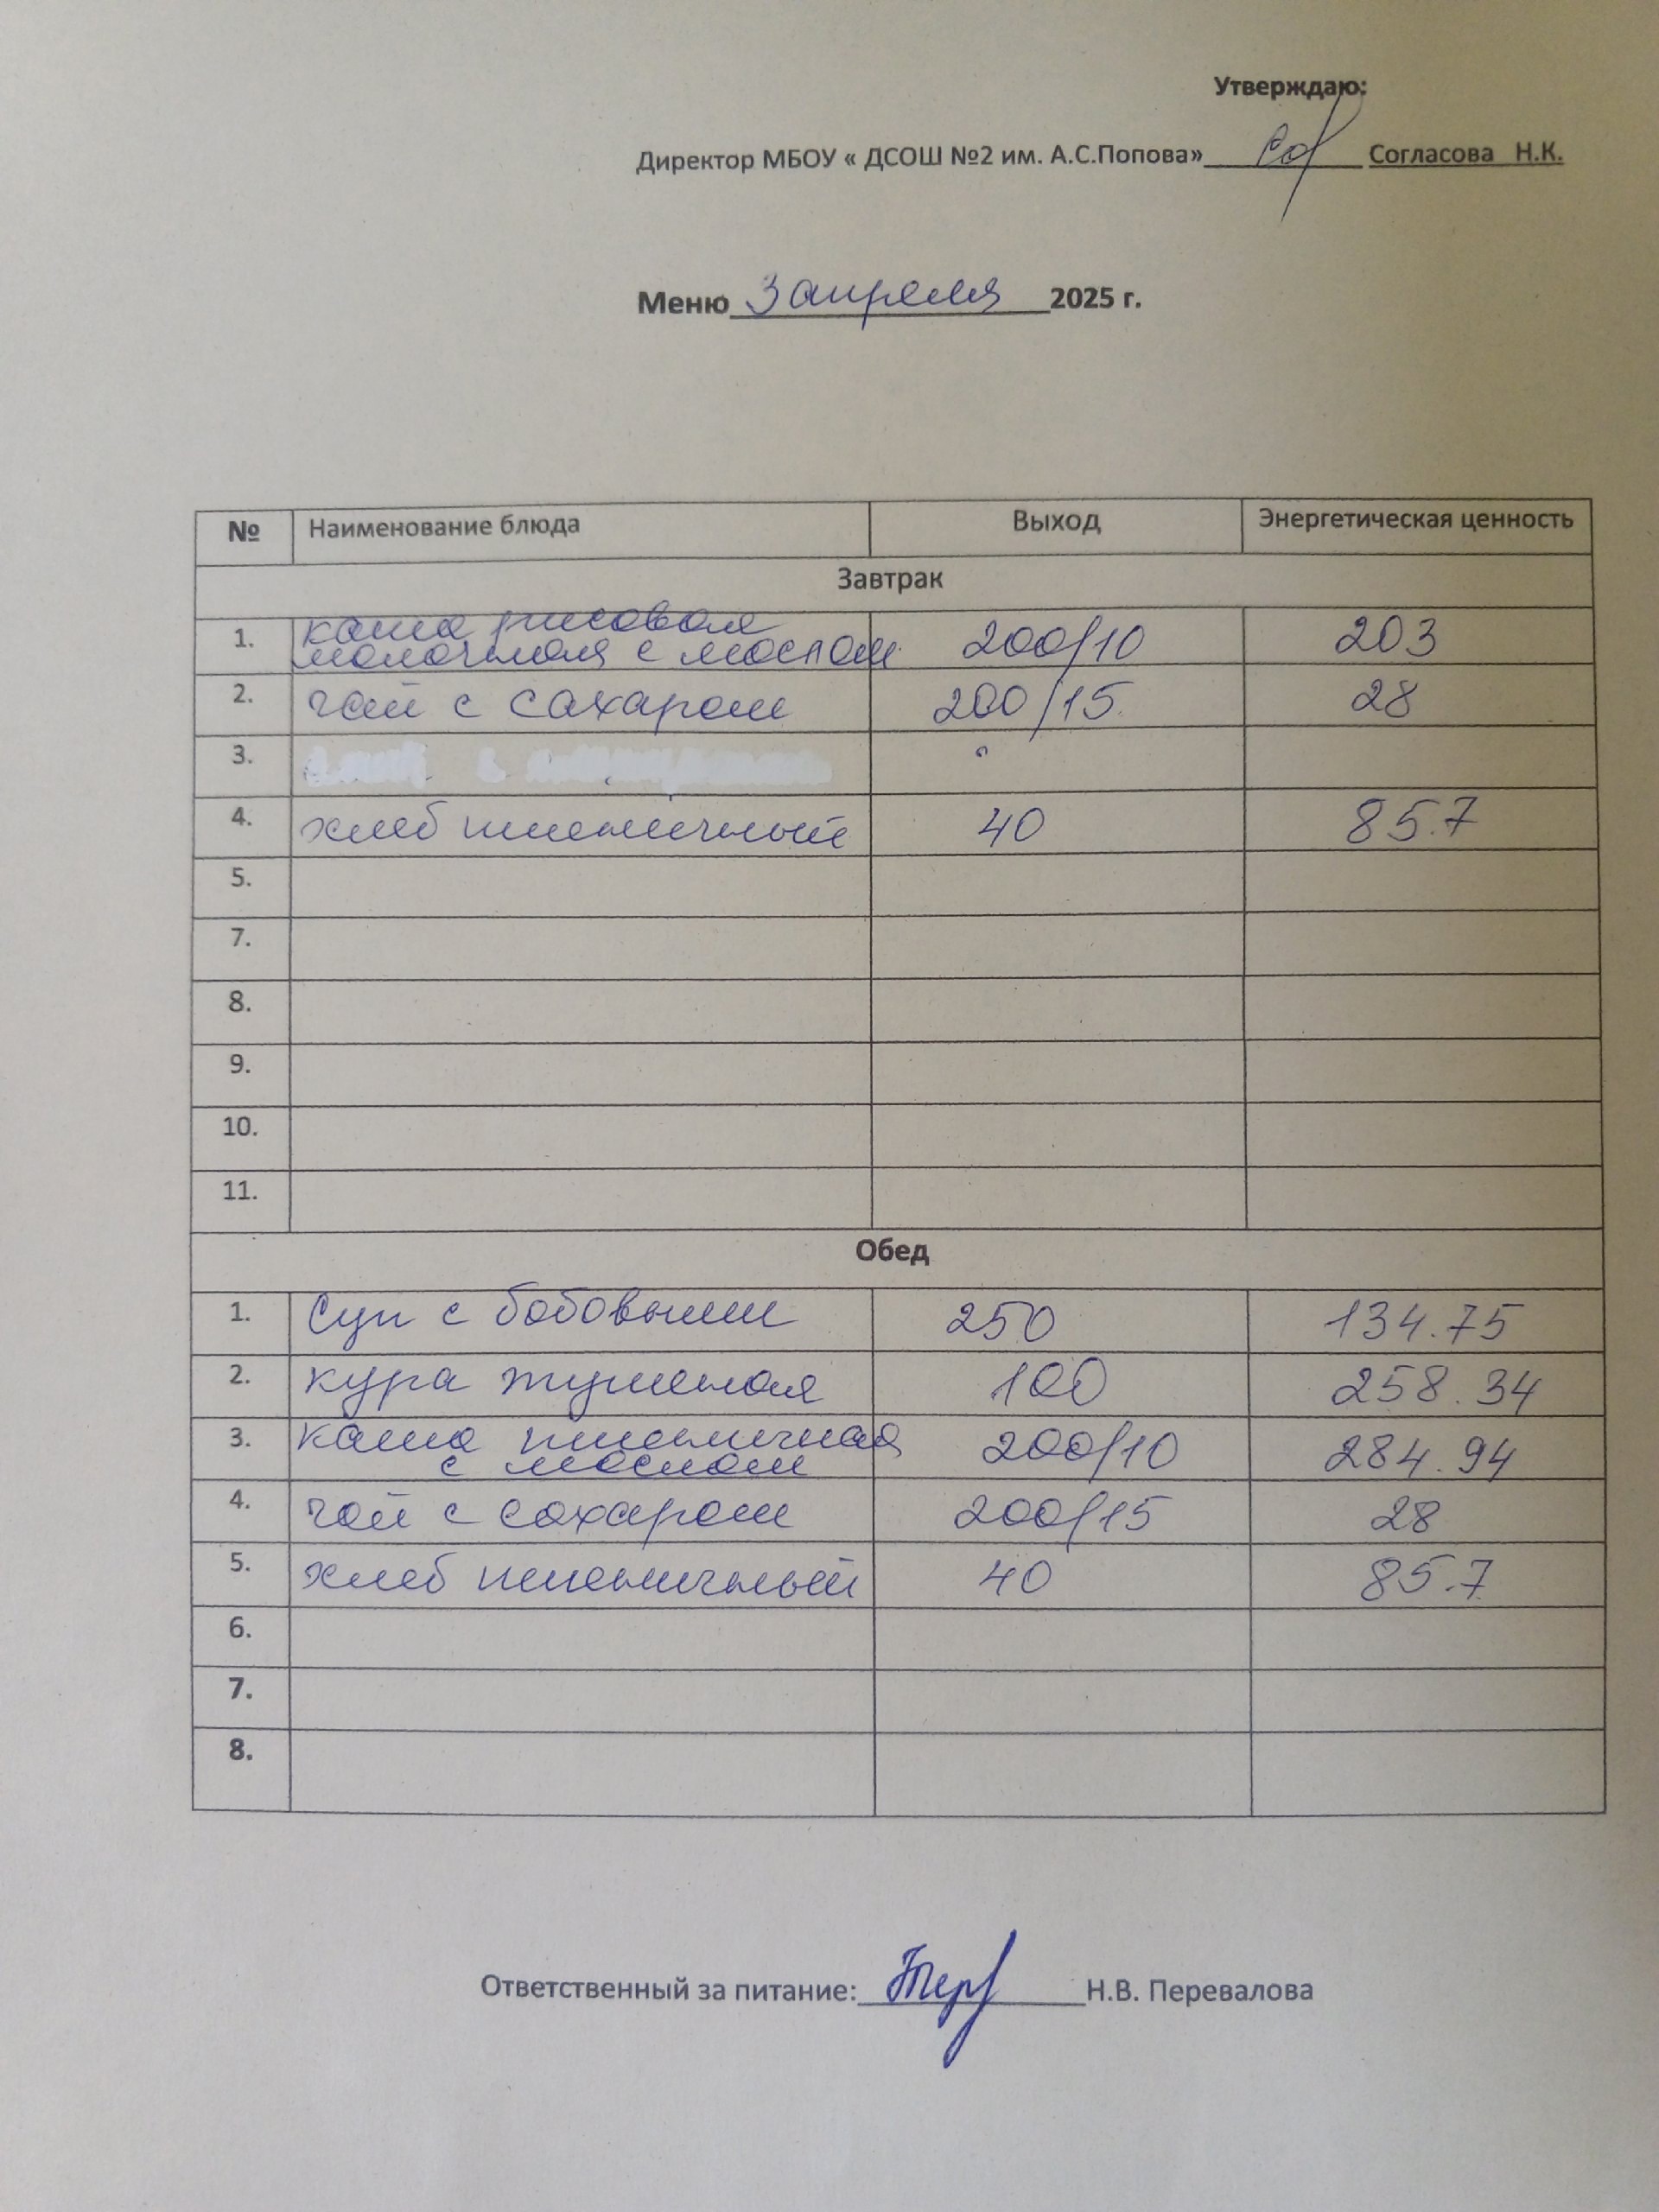 Утверждаю:
Директор МБОУ « ДСОШ №2 им. А.С.Попова» Согласова Н.К.
Меню 3 апреля 2025 г.
№ Наименование блюда Выход Энергетическая ценность
Завтрак
1. каша рисовая
молочная с маслом 200/10 203
2. чай с сахаром 200/15 28
3.
4. хлеб пшеничный 40 85.7
5.
7.
8.
9.
10.
11.
Обед
1. Суп с бобовыми 250 134.75
2. кура тушеная 100 258.34
3. каша пшеничная
с маслом 200/10 284.94
4. чай с сахаром 200/15 28
5. хлеб пшеничный 40 85.7
6.
7.
8.
Ответственный за питание: Н.В. Перевалова